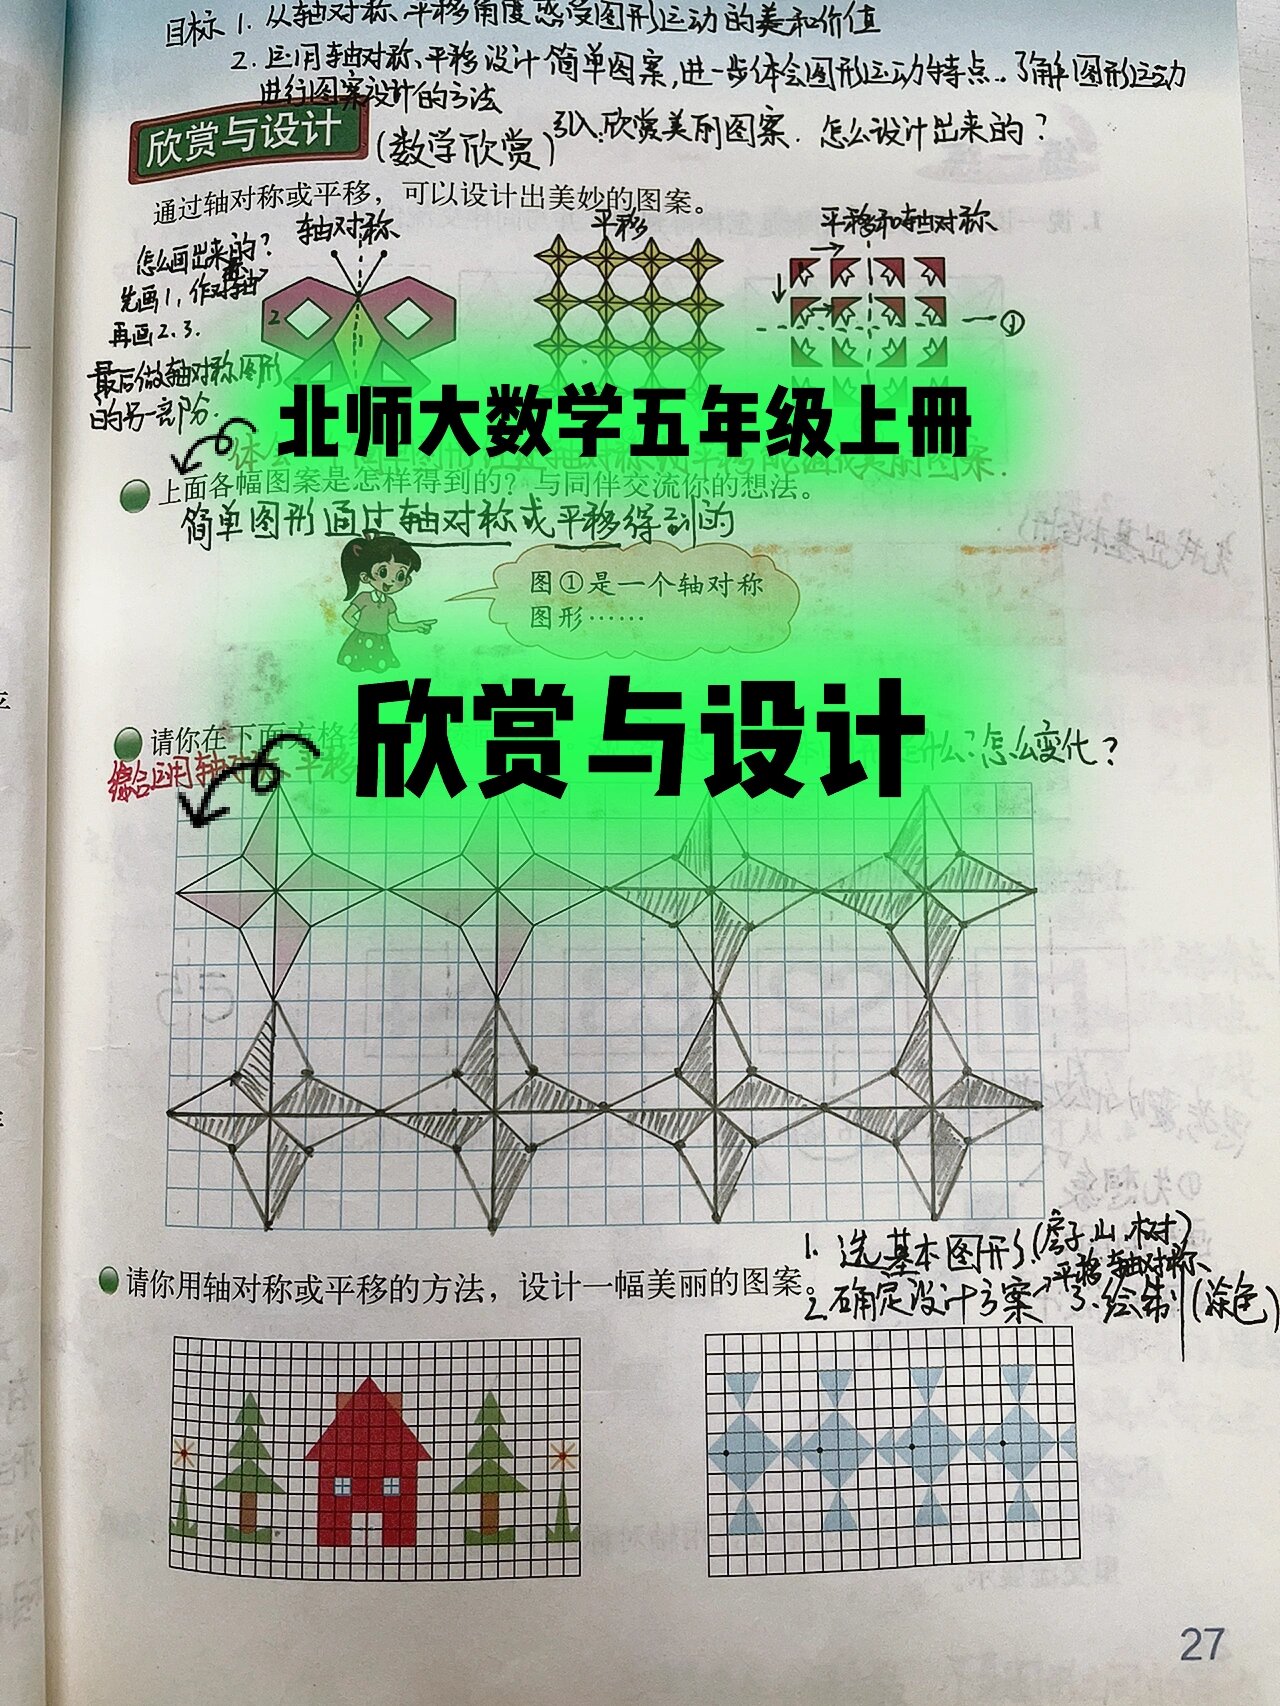 目标 1. 从轴对称、平移角度感受图形运动的美和价值
2. 运用轴对称、平移设计简单图案,进一步体会图形运动特点..了解图形运动
进行图案设计的方法
欣赏与设计 (数学欣赏) 引入:欣赏美丽图案. 怎么设计出来的?
通过轴对称或平移，可以设计出美妙的图案。
轴对称 平移 平移和轴对称
怎么画出来的?
先画1,作对称轴
再画2、3.
最后做轴对称图形
的另一部分.
2
①
北师大数学五年级上冊
上面各幅图案是怎样得到的？与同伴交流你的想法。
简单图形通过轴对称或平移得到的
图①是一个轴对称
图形……
欣赏与设计
请你在下面方格 是什么?怎么变化?
综合运用轴对称、平移
1. 选基本图形(房子.山.树)
平移、轴对称、
请你用轴对称或平移的方法，设计一幅美丽的图案。
2.确定设计方案 3.绘制(涂色)
27